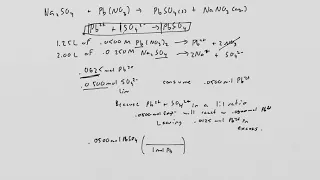 Na₂SO₄ + Pb(NO₃)₂ → PbSO₄(s) + NaNO₃(aq)
Pb²⁺ + SO₄²⁻ → PbSO₄
1.25 L of .0500 M Pb(NO₃)₂ → Pb²⁺ + 2NO₃⁻
2.00 L of 0.250 M Na₂SO₄ → 2Na⁺ + SO₄²⁻
.0625 mol Pb²⁺
.0500 mol SO₄²⁻ consume .0500 mol Pb²⁺
Lim
Because Pb²⁺ + SO₄²⁻ in a 1:1 ratio
.0500 mol SO₄²⁻ will react w .0500 mol Pb²⁺
Leaving .0125 mol Pb²⁺ in
excess.
.0500 mol PbSO₄ ( / 1 mol Pb )